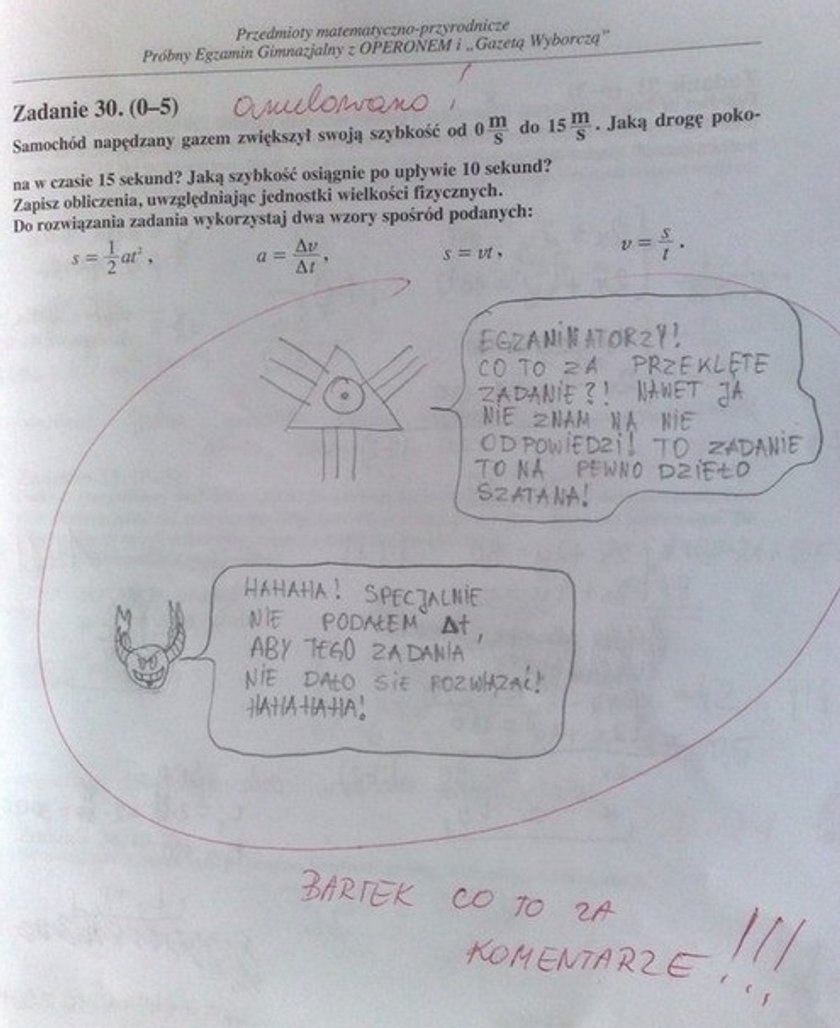 Przedmioty matematyczno-przyrodnicze
Próbny Egzamin Gimnazjalny z OPERONEM i „Gazetą Wyborczą”
Zadanie 30. (0–5) anulowano!
Samochód napędzany gazem zwiększył swoją szybkość od 0 m/s do 15 m/s. Jaką drogę poko-
na w czasie 15 sekund? Jaką szybkość osiągnie po upływie 10 sekund?
Zapisz obliczenia, uwzględniając jednostki wielkości fizycznych.
Do rozwiązania zadania wykorzystaj dwa wzory spośród podanych:
s = 1/2 at², a = Δv/Δt, s = vt, v = s/t.
EGZANINATORZY!
CO TO ZA PRZEKLĘTE
ZADANIE?! NAWET JA
NIE ZNAM NA NIE
ODPOWIEDZI! TO ZADANIE
TO NA PEWNO DZIEŁO
SZATANA!
HAHAHA! SPECJALNIE
NIE PODAŁEM Δt,
ABY TEGO ZADANIA
NIE DAŁO SIĘ ROZWIĄZAĆ!
HAHAHAHA!
BARTEK CO TO ZA
KOMENTARZE!!!